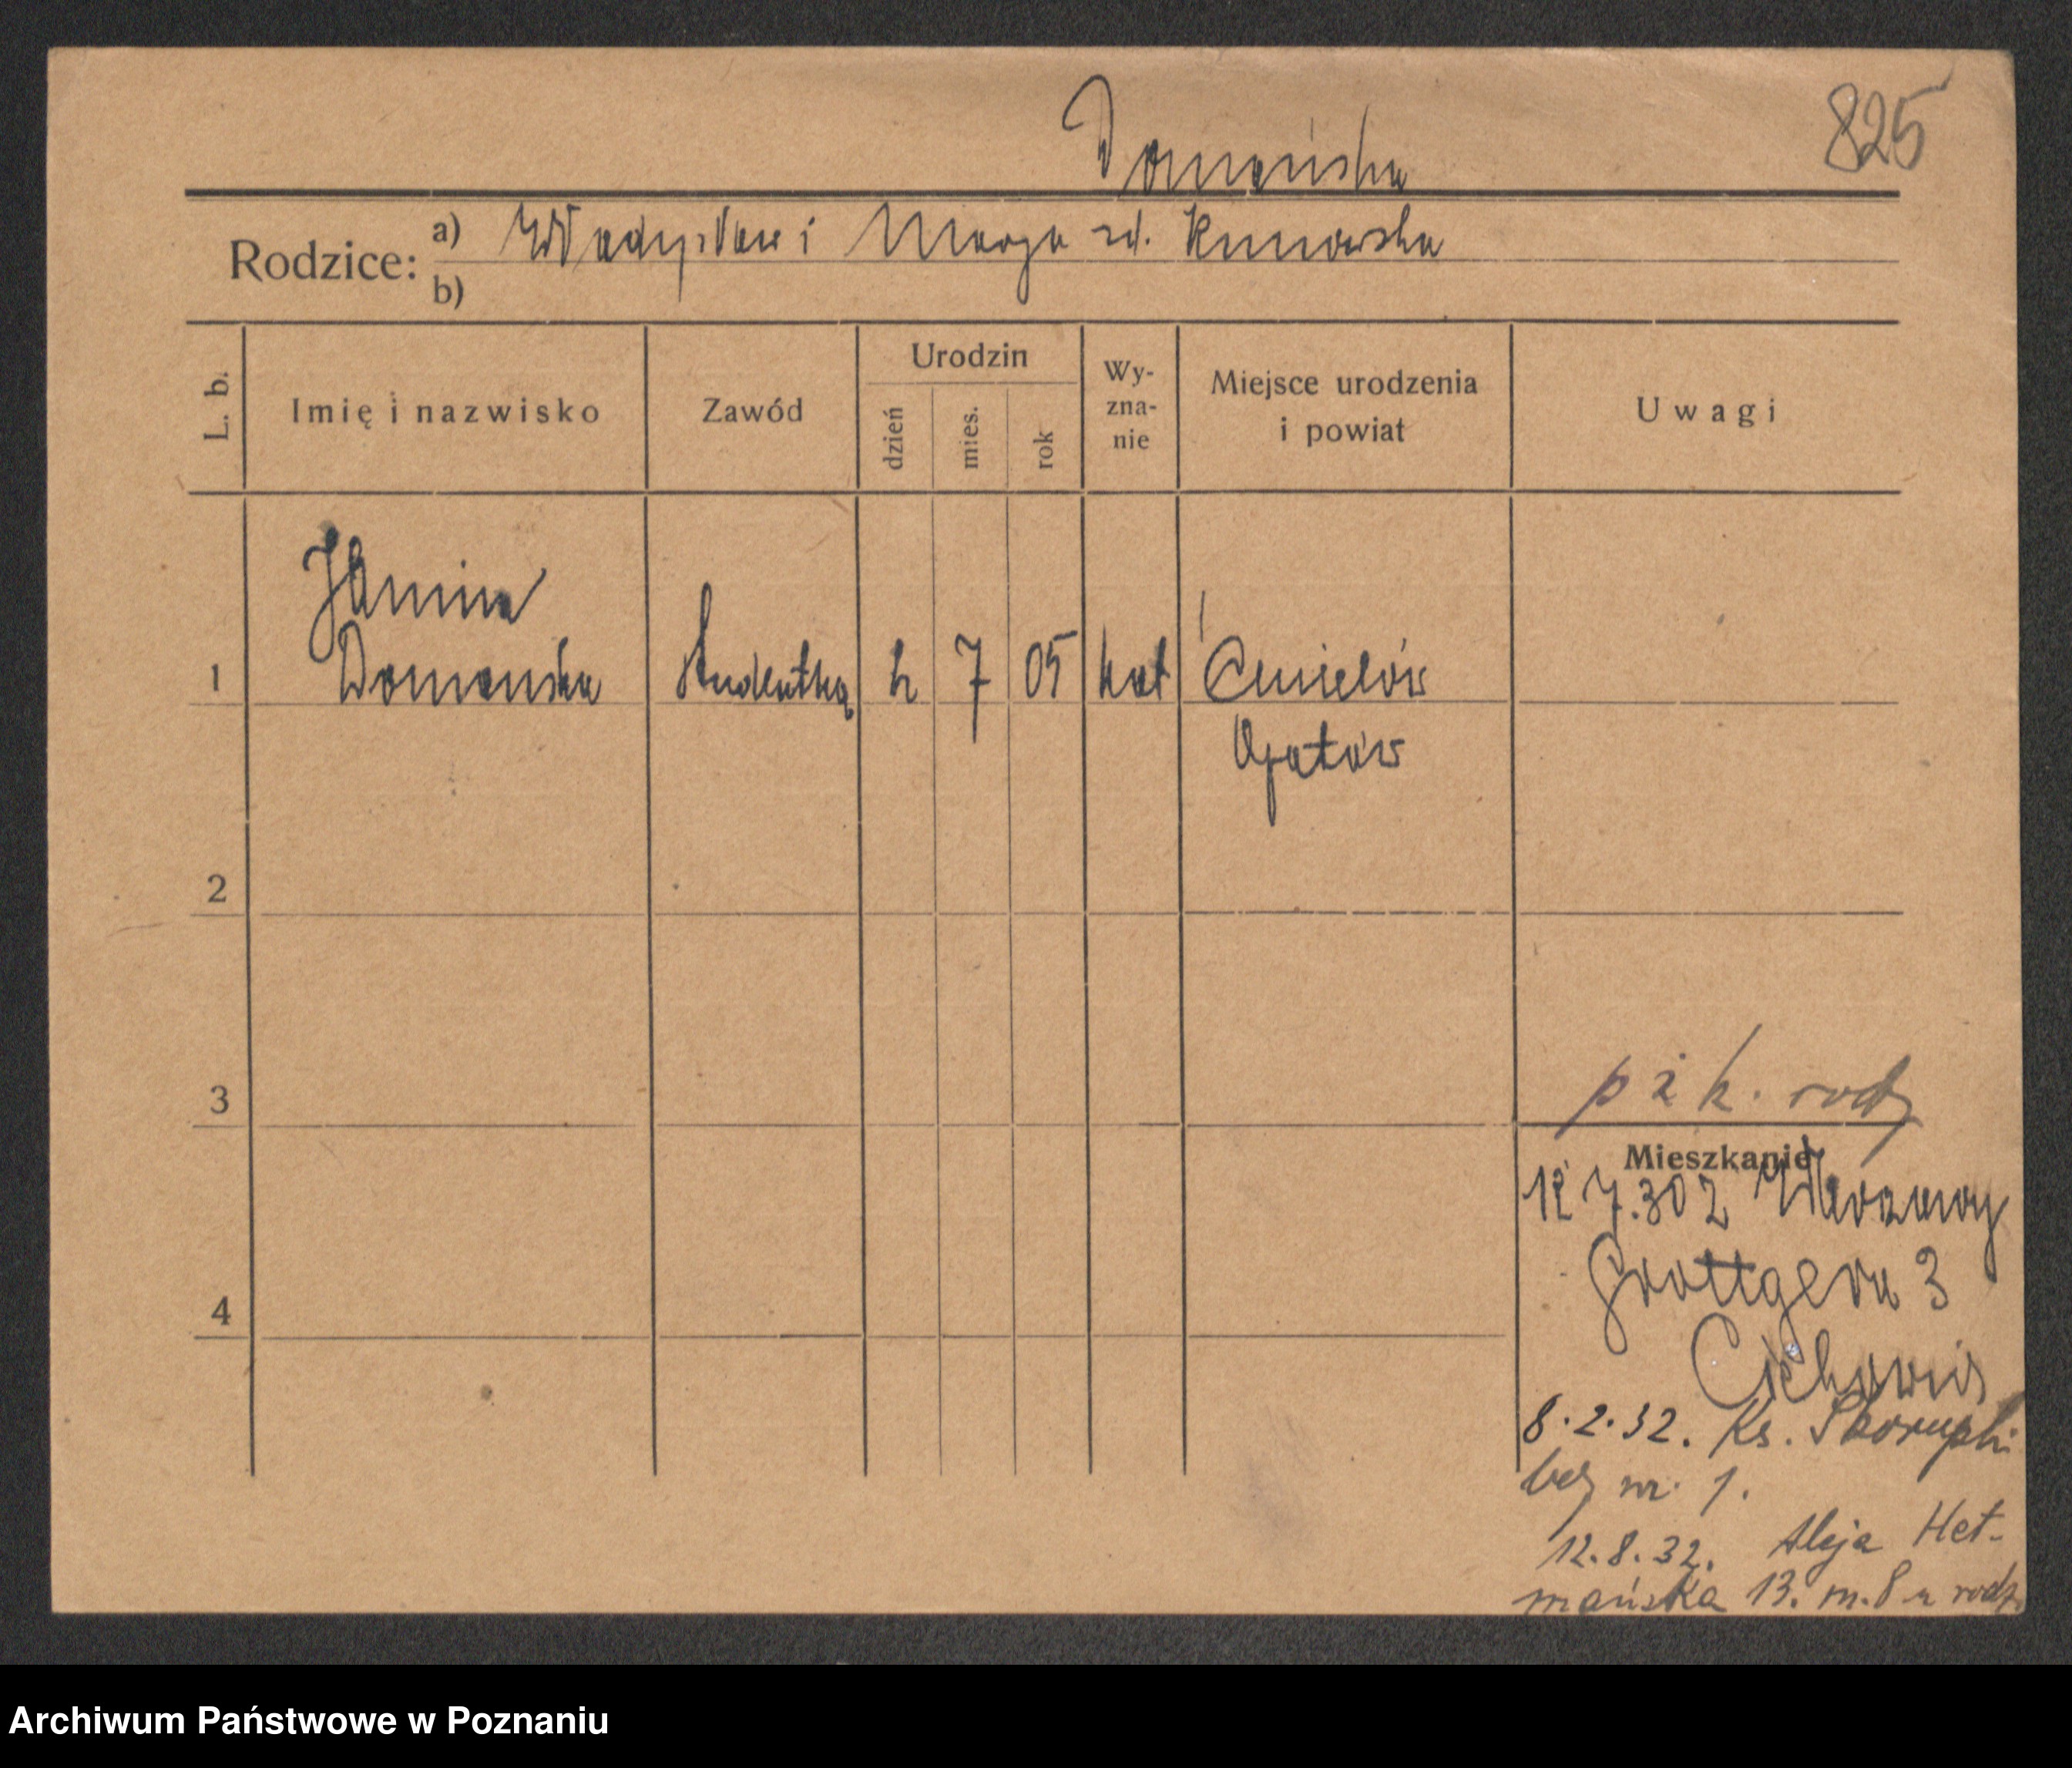 825
Domańska
Rodzice: a) Władysław i Marja zd. Kunowska
b)
L. b.
Imię i nazwisko
Zawód
Urodzin
dzień
mies.
rok
Wy-
zna-
nie
Miejsce urodzenia
i powiat
Uwagi
Janina
1 Domańska Studentka 7 05 kat Ćmielów
Opatów
2
3
p ż k. rodz
Mieszkanie
7.30 z Warszawy
4
Grottgera 3
8.2.32. Ks. Skorupki
bez nr. 1.
12.8.32. Aleja Het-
mańska 13. m. 8 u rodz.
Archiwum Państwowe w Poznaniu